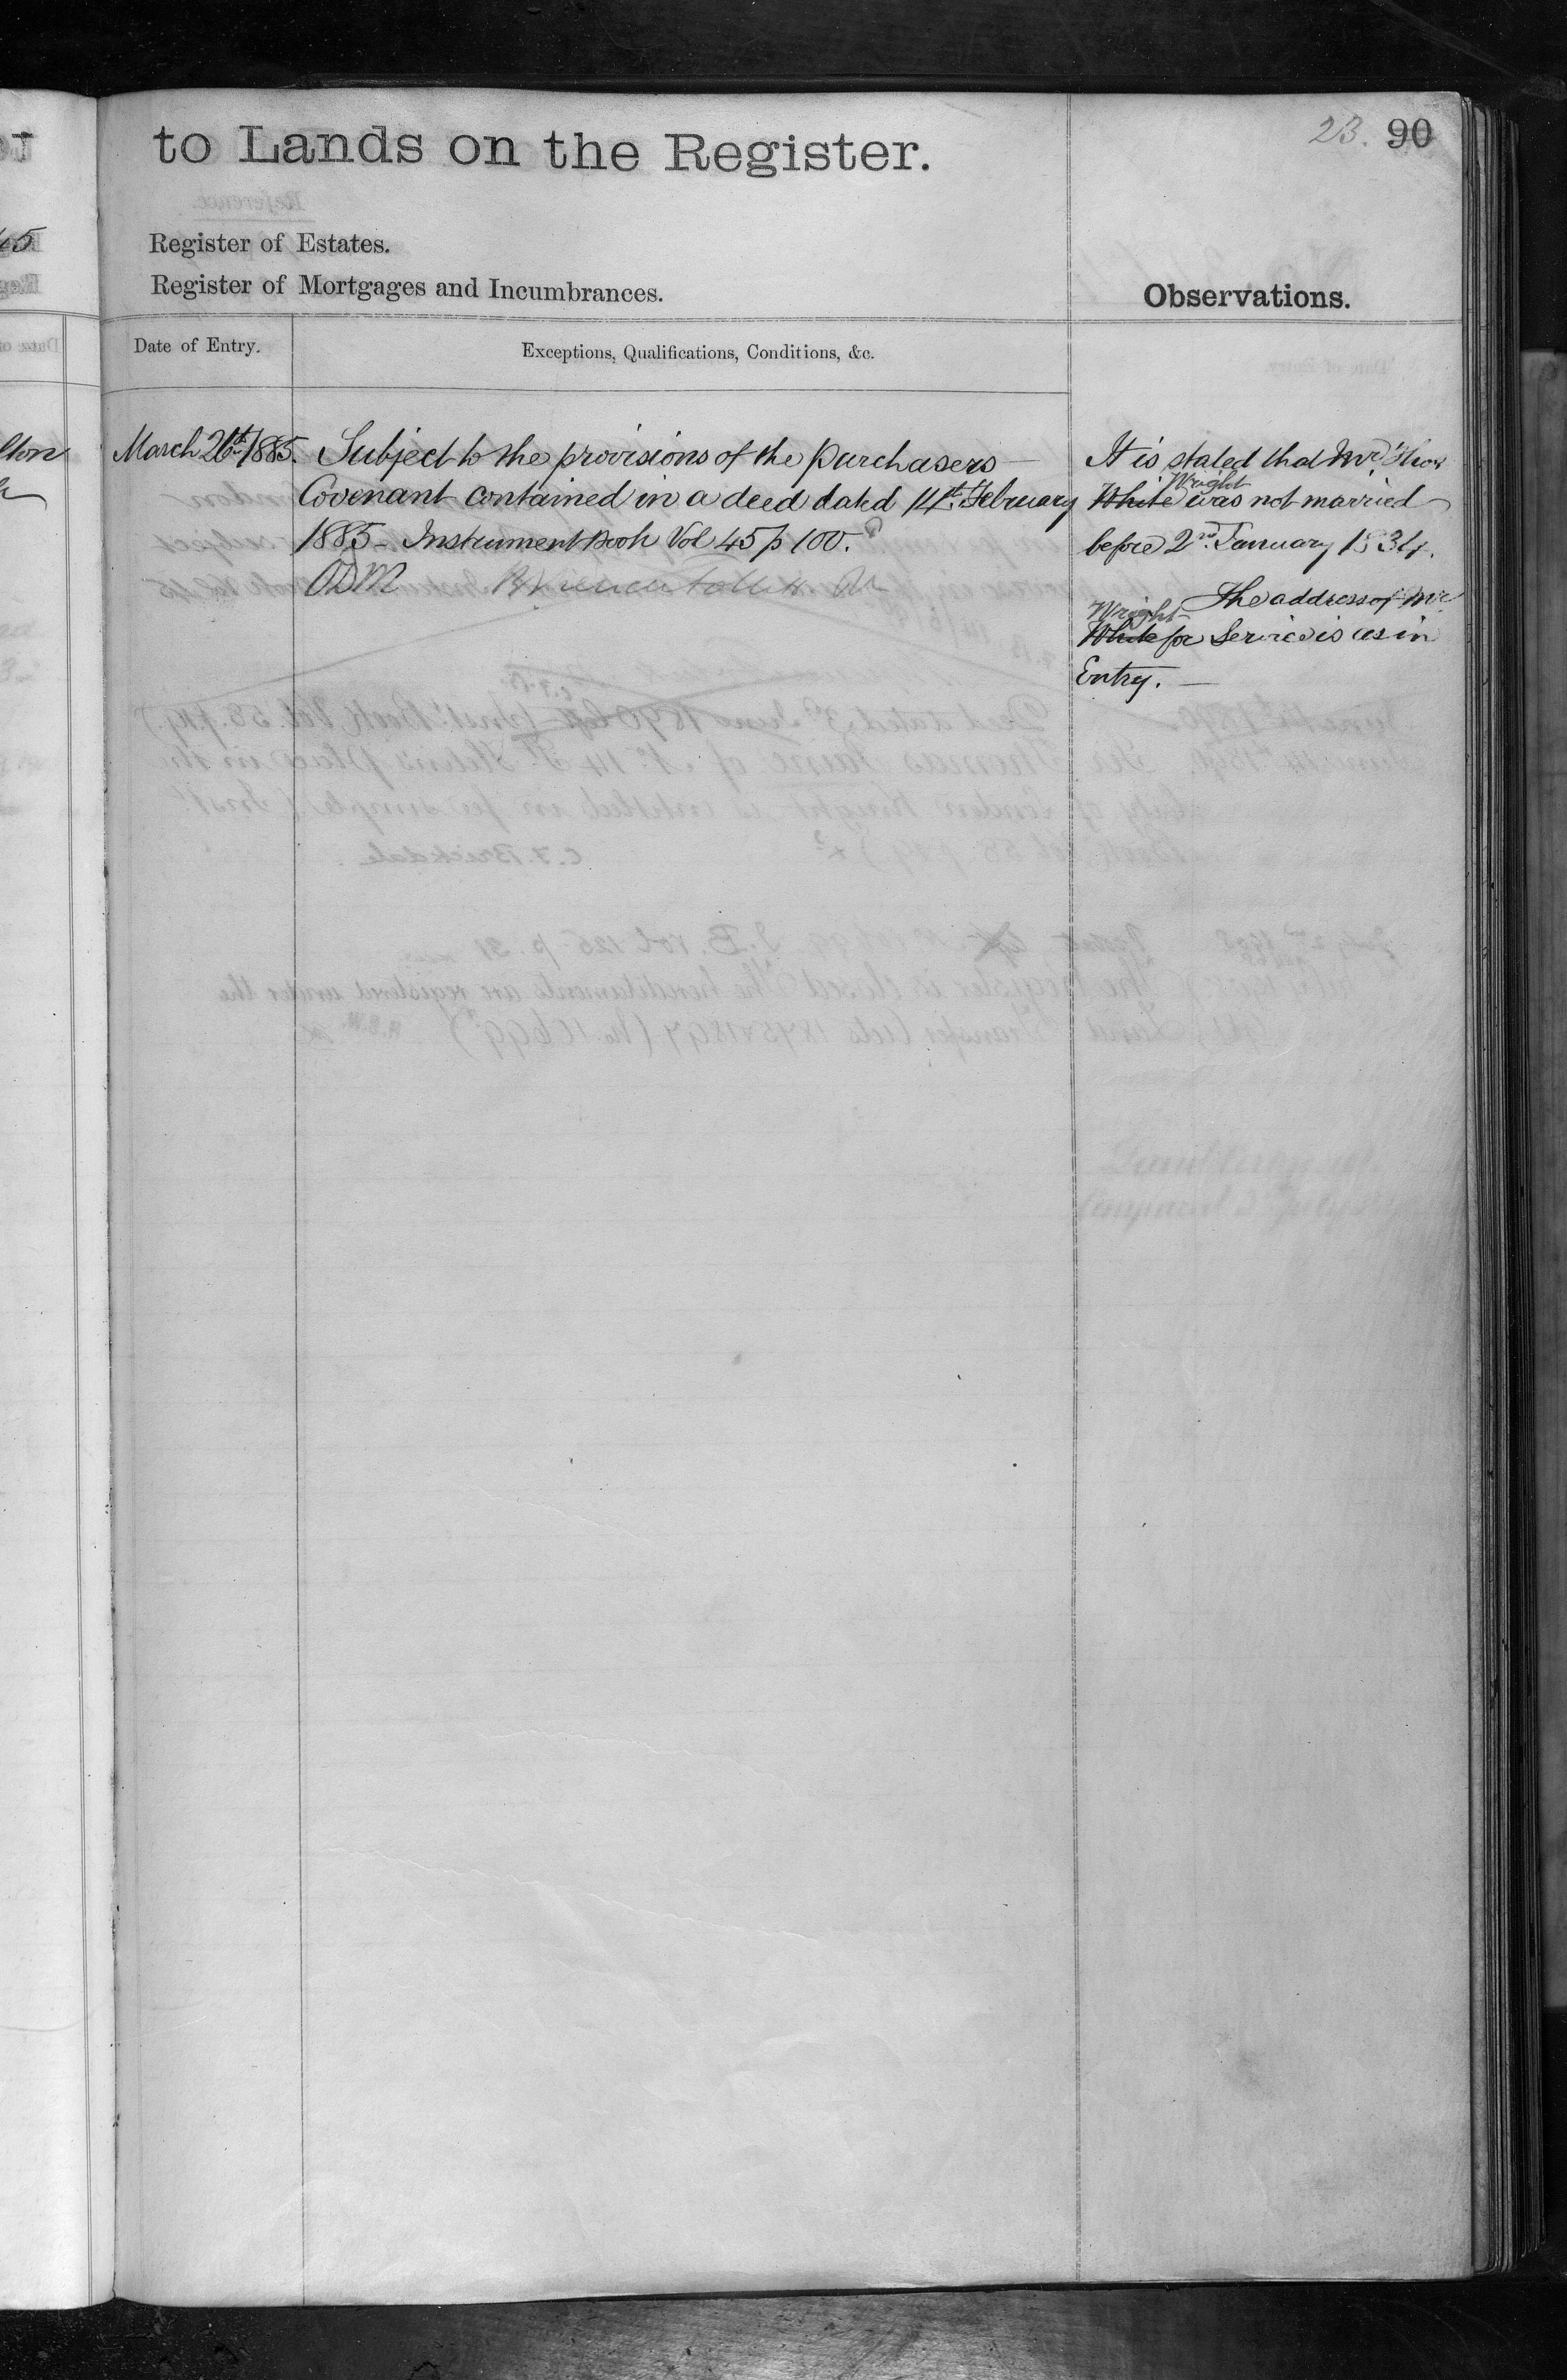 to Lands on the Register.
23. 90
Register of Estates.
Register of Mortgages and Incumbrances.
Observations.
Date of Entry.
Exceptions, Qualifications, Conditions, &c.
March 26th 1885.
Subject to the provisions of the purchasers
Covenant contained in a deed dated 14th February
1885 - Instrument Book Vol 45 p 100.
It is stated that Mr Thos
Wright
White was not married
before 2nd January 1834.
The address of Mr
Wright
White for Service is as in
Entry.